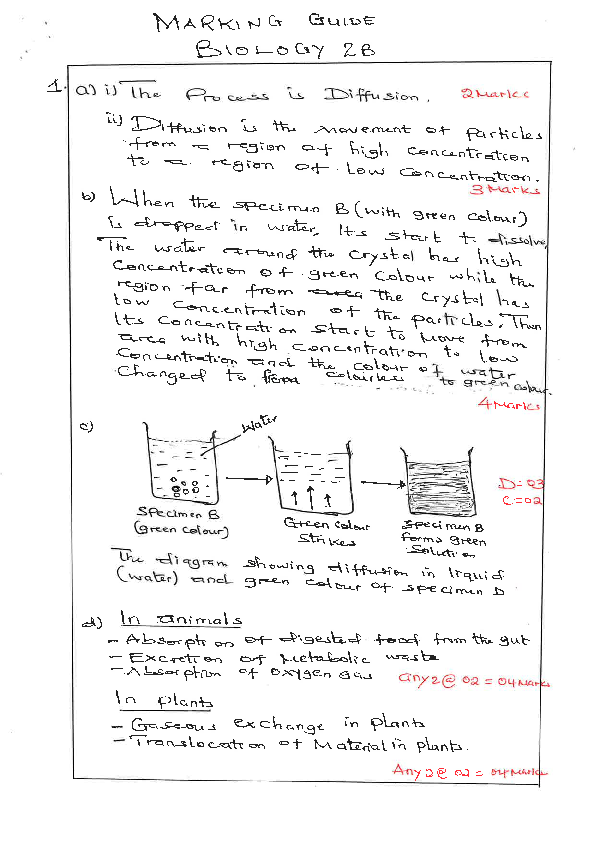 MARKING GUIDE
BIOLOGY 2B
1. a) i) The Process is Diffusion. 2 Marks
ii) Diffusion is the movement of particles
from a region of high concentration
to a region of low concentration.
3 Marks
b) When the specimen B (with green colour)
is dropped in water, Its start to dissolve,
The water around the crystal has high
Concentration of green colour while the
region far from area the crystal has
low concentration of the particles. Then
Its concentration start to move from
area with high concentration to low
Concentration and the colour of water
Changed to from colourless to green colour.
4 Marks
c) Water
D = 03
C = 02
Specimen B
(green colour)
Green Colour
Strikes
Specimen B
forms green
Solution
The diagram showing diffusion in liquid
(water) and green colour of specimen B
d) In animals
- Absorption of digested food from the gut
- Excretion of Metabolic waste
- Absorption of oxygen gas any 2 @ 02 = 04 Marks
In plants
- Gaseous exchange in plants
- Translocation of Material in plants.
Any 2 @ 02 = 04 Marks